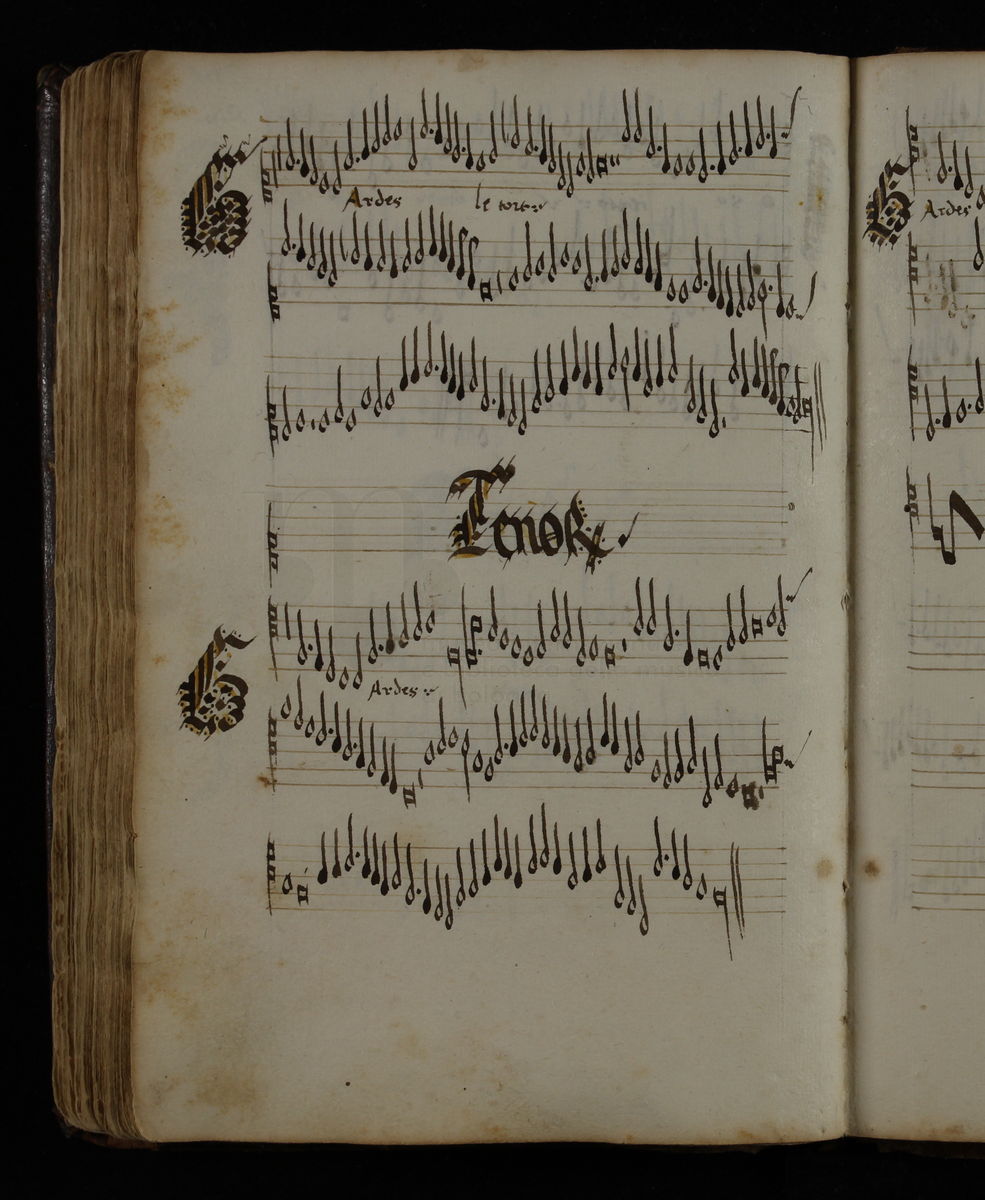 G Ardes le
Tenor
G Ardes
G Ardes